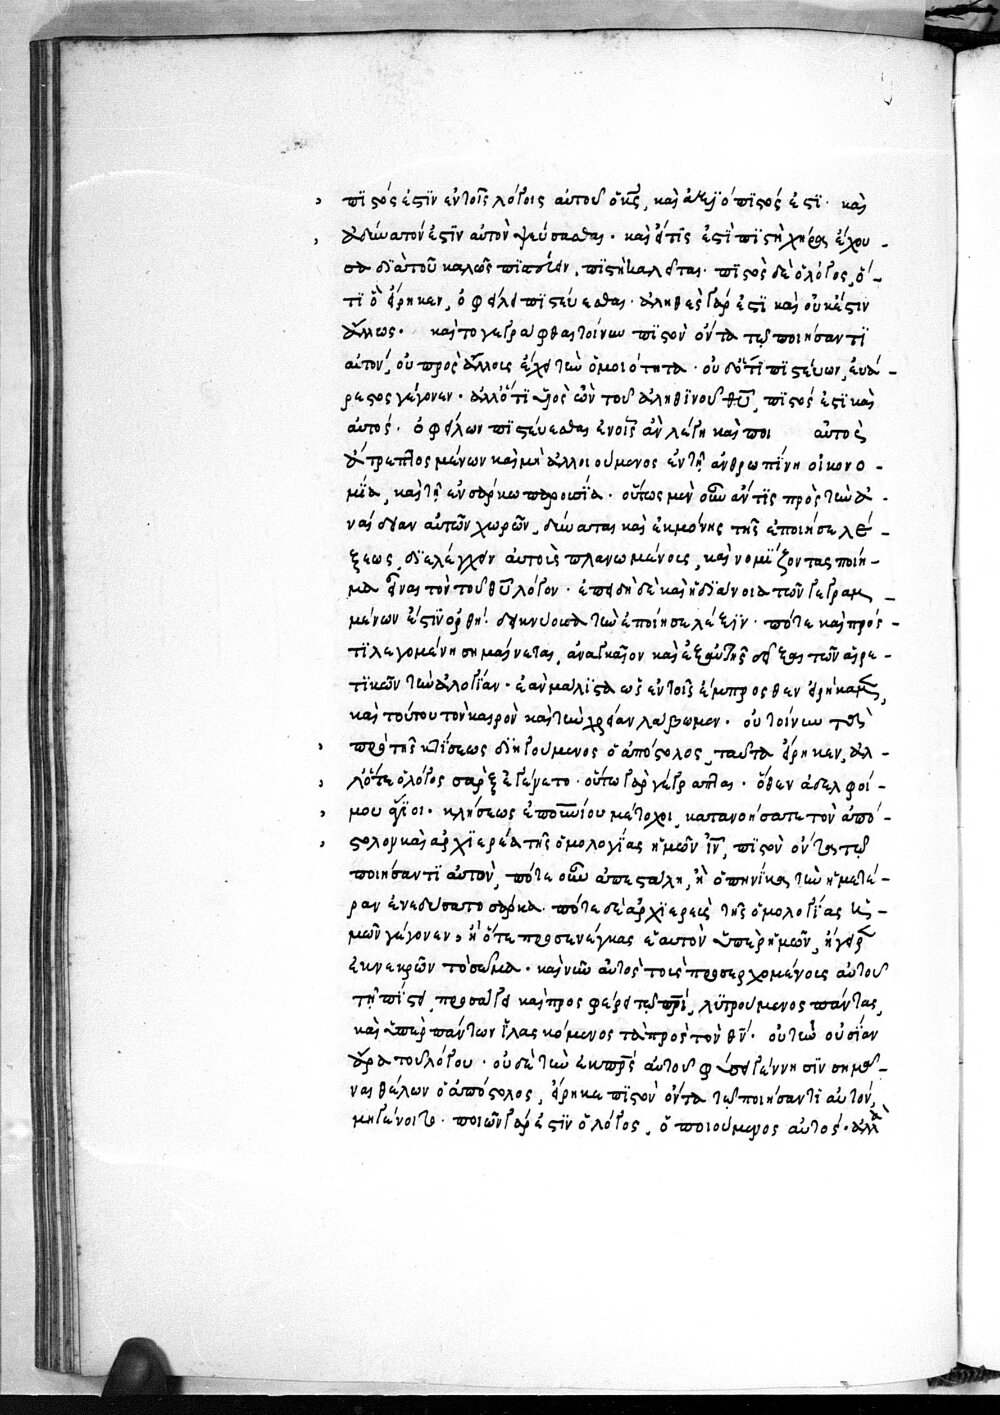 πιστός ἐστιν ἐν τοῖς λόγοις αὐτοῦ ὁ κς, καὶ ἀεὶ ὁ πιστός ἐστι· καὶ
ἀδύνατόν ἐστιν αὐτὸν ψεύσασθαι· καὶ εἴ τις ἐστὶ πιστὴ χήρας ἔχου
σα διὰ τοῦ καλῶς πιστεύειν, πιστὴ καλεῖται· πιστὸς δὲ ὁ λόγος, ὅ-
τι ὃ εἴρηκεν, ὀφείλει πιστεύεσθαι· ἀληθὲς γάρ ἐστι καὶ οὐκ ἔστιν
ἄλλως· καὶ τὸ γεγράφθαι τοίνυν πιστὸν ὄντα τῷ ποιήσαντι
αὐτόν, οὐ πρὸς ἄλλοις ἔχει τὴν ὁμοιότητα· οὐδ' ὅτι πιστεύων, εὐά-
ρεστος γέγονεν· ἀλλ' ὅτι υἱὸς ὢν τοῦ ἀληθινοῦ θυ, πιστός ἐστι καὶ
αὐτός· ὀφείλων πιστεύεσθαι ἐν οἷς ἂν λέγη καὶ ποι αὐτὸς
ἄτρεπτος μένων καὶ μὴ ἀλλοιούμενος ἐν τῇ ἀνθρωπίνη οἰκονο-
μία, καὶ τῇ ἐνσάρκω παρουσία· οὕτως μὲν οὖν ἄν τις πρὸς τὴν ἀ-
ναίδειαν αὐτῶν χωρῶν, δύναται καὶ ἐκ μόνης τῆς ἐποίησε λέ-
ξεως, διελέγχειν αὐτοὺς πλανωμένους, καὶ νομίζοντας ποίη-
μα εἶναι τὸν τοῦ θυ λόγον· ἐπειδὴ δὲ καὶ ἡ διάνοια τῶν γεγραμ-
μένων ἔστιν ὀρθὴ δεικνύουσα τὴν ἐποίησε λέξιν· πότε καὶ πρός
τι λεγομένη σημαίνεται, ἀναγκαῖον καὶ ἐξ αὐτῆς δεῖξαι τῶν αἱρε-
τικῶν τὴν ἀλογίαν· ἐὰν μάλιστα ὡς ἐν τοῖς ἔμπροσθεν εἰρήκαμεν,
καὶ τούτου τὸν καιρὸν καὶ τὴν χρείαν λάβωμεν· οὐ τοίνυν τὰ
πρὸ τῆς κτίσεως διηγούμενος ὁ ἀπόστολος, ταῦτα εἴρηκεν, ἀλ-
λ' ὅτε ὁ λόγος σὰρξ ἐγένετο· οὕτω γὰρ γέγραπται· ὅθεν ἀδελφοί
μου ἅγιοι· κλήσεως ἐπουνίου μέτοχοι, κατανοήσατε τὸν ἀπό-
στολον καὶ ἀρχιερέα τῆς ὁμολογίας ἡμῶν ιν, πιστὸν ὄντα τῷ
ποιήσαντι αὐτὸν, πότε οὖν ἀπεστάλη, ἢ ὁπηνίκα τὴν ἡμετέ-
ραν ἐνεδύσατο σάρκα· πότε δὲ ἀρχιερεὺς τῆς ὁμολογίας ἡ-
μῶν γέγονεν, ἢ ὅτε προσενέγκας ἑαυτὸν ὑπὲρ ἡμῶν, ἤγειρεν
ἐκ νεκρῶν τὸ σῶμα· καὶ νῦν αὐτὸς τοὺς προσερχομένους αὐτοῦ
τῇ πίστει, προσάγει καὶ προσφέρει τῷ πρι, λυτρούμενος πάντας,
καὶ ὑπὲρ πάντων ἱλασκόμενος τὰ πρὸς τὸν θν· οὐ τὴν οὐσίαν
ἄρα τοῦ λόγου· οὐδὲ τὴν ἐκ πρς αὐτοῦ φύσει γέννησιν σημᾶ-
ναι θέλων ὁ ἀπόστολος, εἴρηκε πιστὸν ὄντα τῷ ποιήσαντι αὐτόν,
μὴ γένοιτο· ποιῶν γάρ ἐστιν ὁ λόγος, οὐ ποιούμενος αὐτός· ἀλλὰ